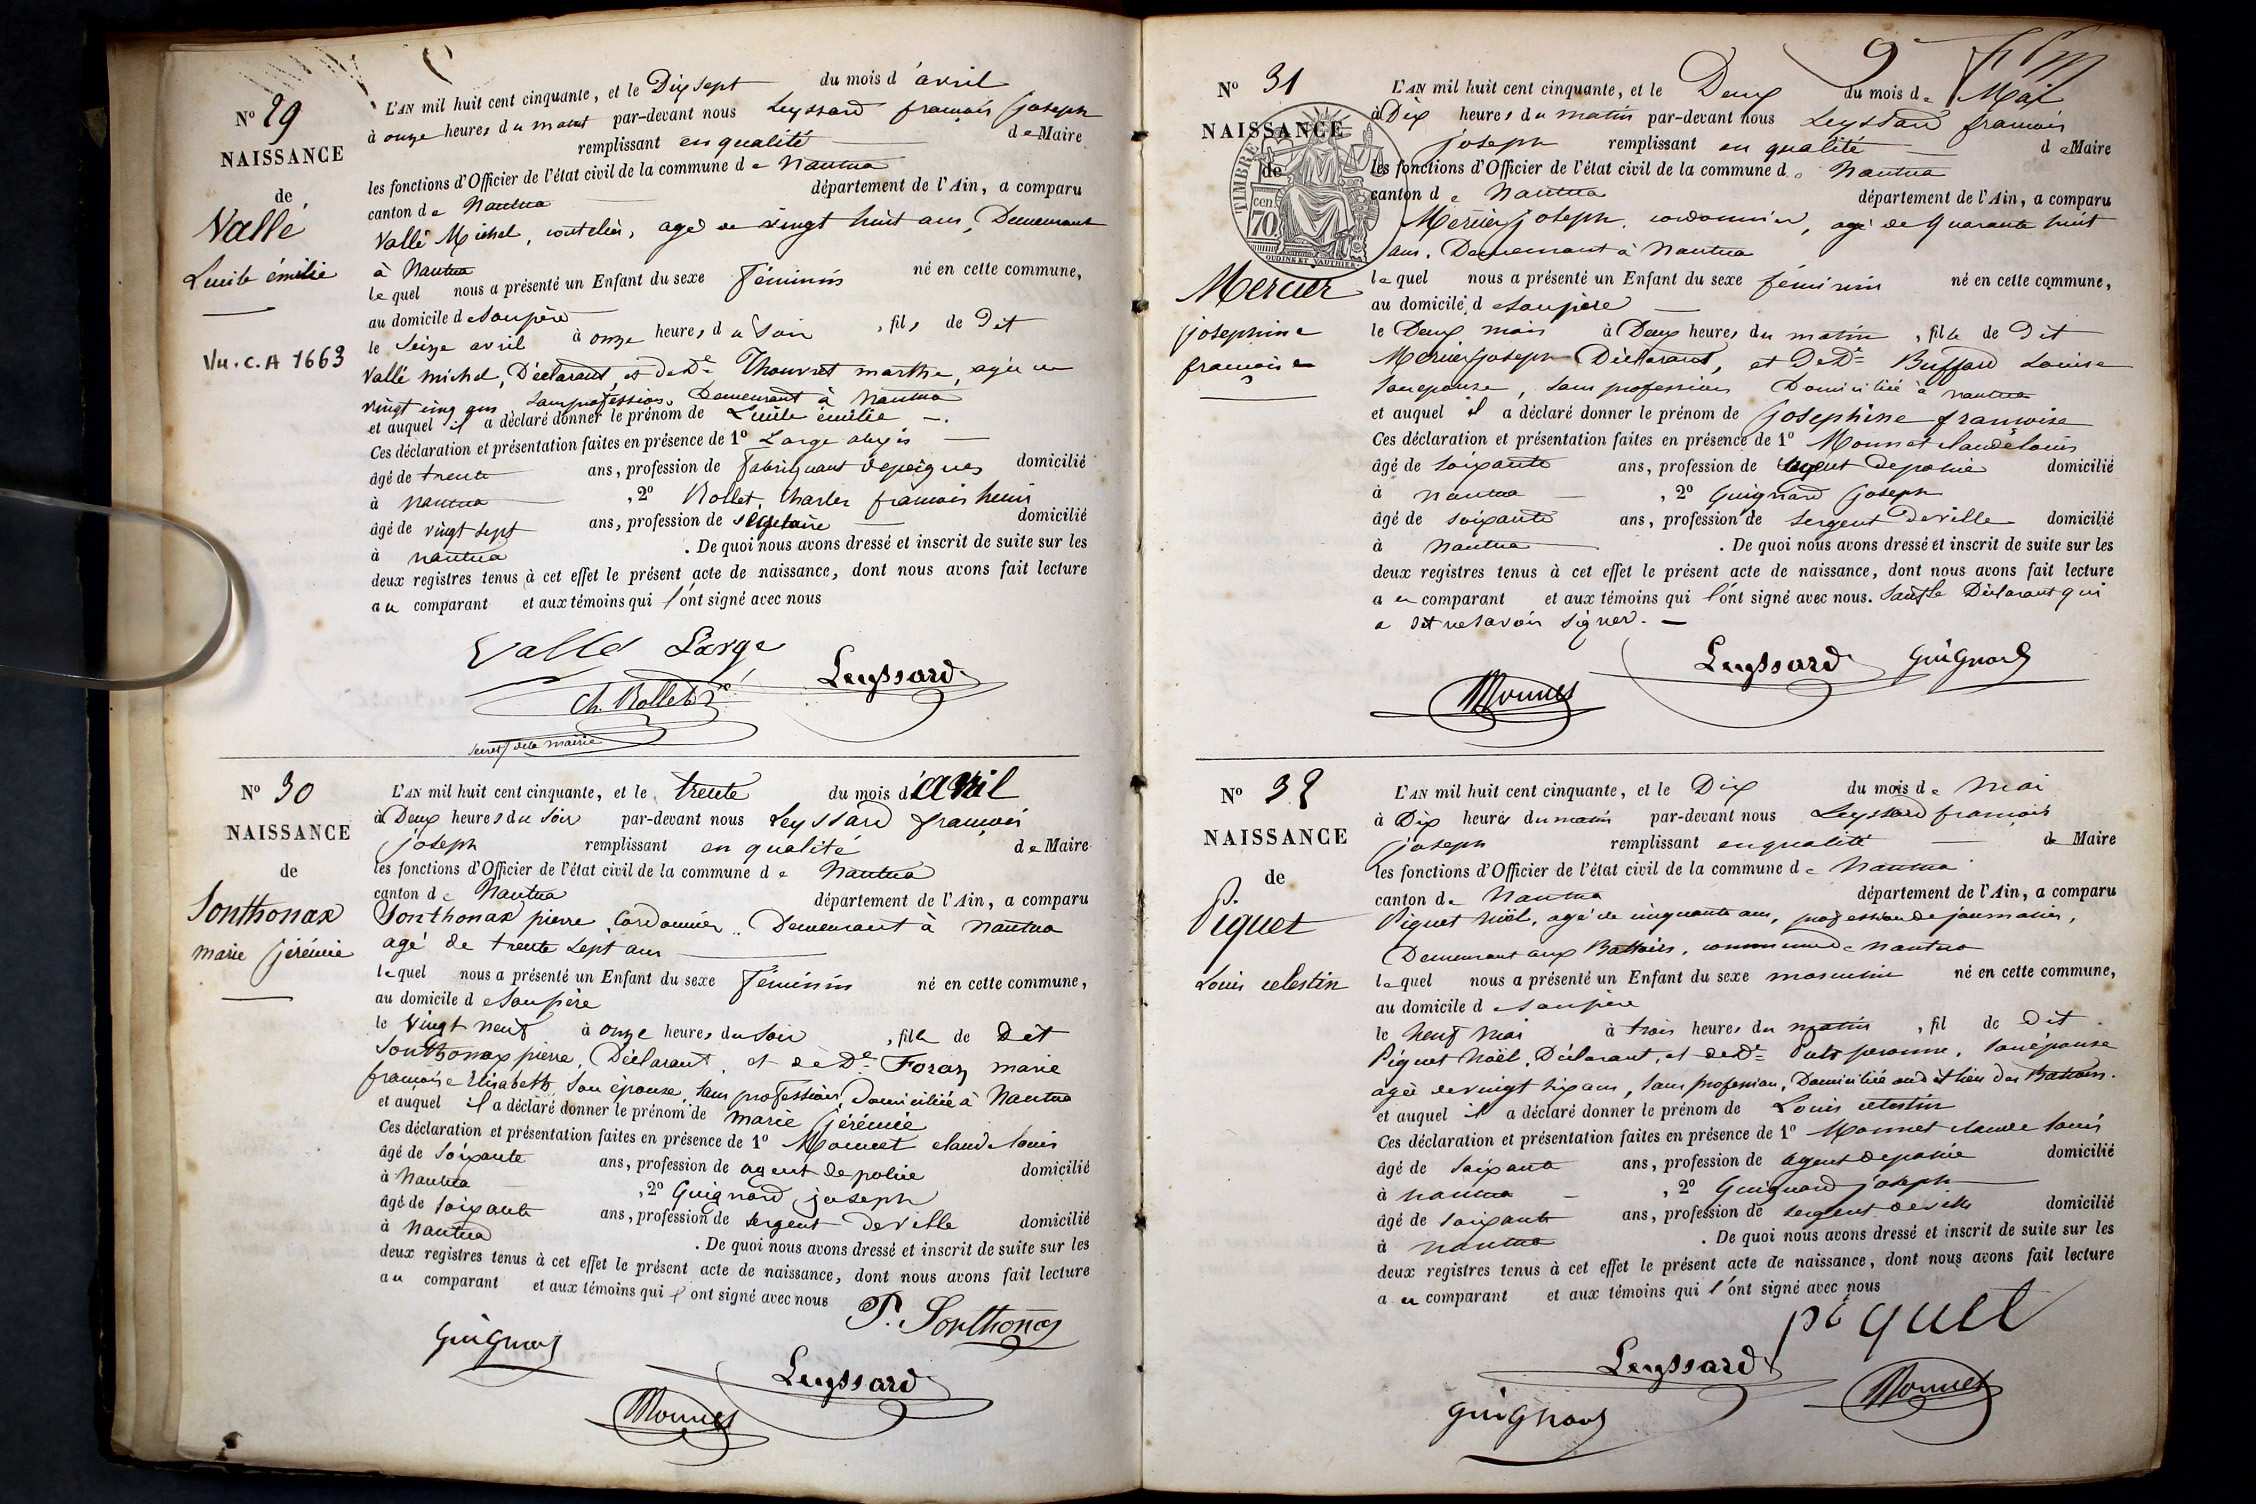 N° 29
NAISSANCE
de
Vallé
Lucile émilie
Vu. C. A 1663
L'AN mil huit cent cinquante, et le Dix sept du mois d'avril
à onze heures du matin par-devant nous Leyssard françois joseph
remplissant en qualité de Maire
les fonctions d'Officier de l'état civil de la commune de Nantua
canton de Nantua département de l'Ain, a comparu
Vallé Michel, coutelier, agé de vingt huit ans, Demeurant
à Nantua
lequel nous a présenté un Enfant du sexe féminin né en cette commune,
au domicile de son père
le seize avril à onze heures du soir, fils de Dit
Vallé michel, Déclarant, et de De Thouvret marthe, agée de
vingt cinq ans sans profession, Demeurant à Nantua
et auquel il a déclaré donner le prénom de Lucile émilie
Ces déclaration et présentation faites en présence de 1° Large alexis
âgé de trente ans, profession de fabriquant de peignes domicilié
à nantua, 2° Rollet, Charles françois henri
âgé de vingt sept ans, profession de sécrétaire domicilié
à nantua. De quoi nous avons dressé et inscrit de suite sur les
deux registres tenus à cet effet le présent acte de naissance, dont nous avons fait lecture
au comparant et aux témoins qui l'ont signé avec nous
Vallé Large
Leyssard
Ch. Rollet
secret de la mairie
N° 30
NAISSANCE
de
Sonthonax
marie jérémie
L'AN mil huit cent cinquante, et le trente du mois d'avril
à Deux heures du soir par-devant nous Leyssard françois
joseph remplissant en qualité de Maire
les fonctions d'Officier de l'état civil de la commune de Nantua
canton de Nantua département de l'Ain, a comparu
Sonthonax pierre, Cordonnier. Demeurant à Nantua
agé de trente sept ans
lequel nous a présenté un Enfant du sexe féminin né en cette commune,
au domicile de son père
le vingt neuf à onze heures du soir, fille de Dit
Sonthonax pierre, Déclarant, et de De Foray marie
françoise Elisabeth, son épouse, sans profession, Domiciliée à Nantua
et auquel il a déclaré donner le prénom de marie jérémie
Ces déclaration et présentation faites en présence de 1° Monnet claude louis
âgé de soixante ans, profession de agent de police domicilié
à Nantua, 2° Guignard joseph
âgé de soixante ans, profession de sergent de ville domicilié
à Nantua. De quoi nous avons dressé et inscrit de suite sur les
deux registres tenus à cet effet le présent acte de naissance, dont nous avons fait lecture
au comparant et aux témoins qui l'ont signé avec nous
P. Sonthonax
Guignard
Leyssard
Monnet
9
N° 31
NAISSANCE
de
TIMBRE
70 cen
OUDINE ET VAUTHIER
Mercier
josephine
françoise
L'AN mil huit cent cinquante, et le Deux du mois de Mai
à Dix heures du matin par-devant nous Leyssard françois
joseph remplissant en qualité de Maire
les fonctions d'Officier de l'état civil de la commune de Nantua
canton de Nantua département de l'Ain, a comparu
Mercier joseph, cordonnier, agé de quarante huit
ans. Demeurant à Nantua
lequel nous a présenté un Enfant du sexe féminin né en cette commune,
au domicile de son père
le Deux mai à Deux heures du matin, fille de Dit
Mercier joseph Déclarant, et De De Buffard Louise
son épouse, sans profession Domiciliée à nantua
et auquel il a déclaré donner le prénom de josephine françoise
Ces déclaration et présentation faites en présence de 1° Monnet claude louis
âgé de soixante ans, profession de agent de police domicilié
à nantua, 2° Guignard joseph
âgé de soixante ans, profession de sergent de ville domicilié
à Nantua. De quoi nous avons dressé et inscrit de suite sur les
deux registres tenus à cet effet le présent acte de naissance, dont nous avons fait lecture
au comparant et aux témoins qui l'ont signé avec nous. Sauf le Déclarant qui
a dit ne savoir signer.
Leyssard Guignard
Monnet
N° 32
NAISSANCE
de
Piquet
Louis celestin
L'AN mil huit cent cinquante, et le Dix du mois de mai
à Dix heures du matin par-devant nous Leyssard françois
joseph remplissant en qualité de Maire
les fonctions d'Officier de l'état civil de la commune de Nantua
canton de Nantua département de l'Ain, a comparu
Piquet Noël, agé de cinquante ans, profession de journalier,
Demeurant aux Battoirs, commune de nantua
lequel nous a présenté un Enfant du sexe masculin né en cette commune,
au domicile de son père
le neuf mai à trois heures du matin, fil de Dit
Piquet Noël, Déclarant, et de De peronne, son épouse
agée de vingt six ans, sans profession, Domiciliée au dit lieu des Battoirs.
et auquel il a déclaré donner le prénom de Louis celestin
Ces déclaration et présentation faites en présence de 1° Monnet claude louis
âgé de soixante ans, profession de agent de police domicilié
à nantua, 2° Guignard joseph
âgé de soixante ans, profession de sergent de ville domicilié
à nantua. De quoi nous avons dressé et inscrit de suite sur les
deux registres tenus à cet effet le présent acte de naissance, dont nous avons fait lecture
au comparant et aux témoins qui l'ont signé avec nous
piquet
Leyssard
Monnet
Guignard